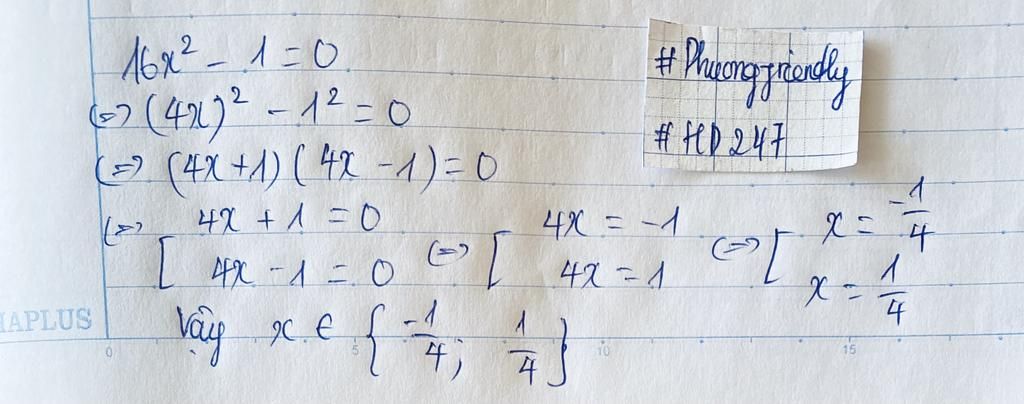 16x² - 1 = 0
<=> (4x)² - 1² = 0
<=> (4x+1)(4x-1) = 0
<=> [ 4x + 1 = 0 <=> [ 4x = -1 <=> [ x = -1/4
4x - 1 = 0 4x = 1 x = 1/4
Vậy x ∈ { -1/4; 1/4 }
# Phuongfriendly
# HD 247
APLUS
0 5 10 15